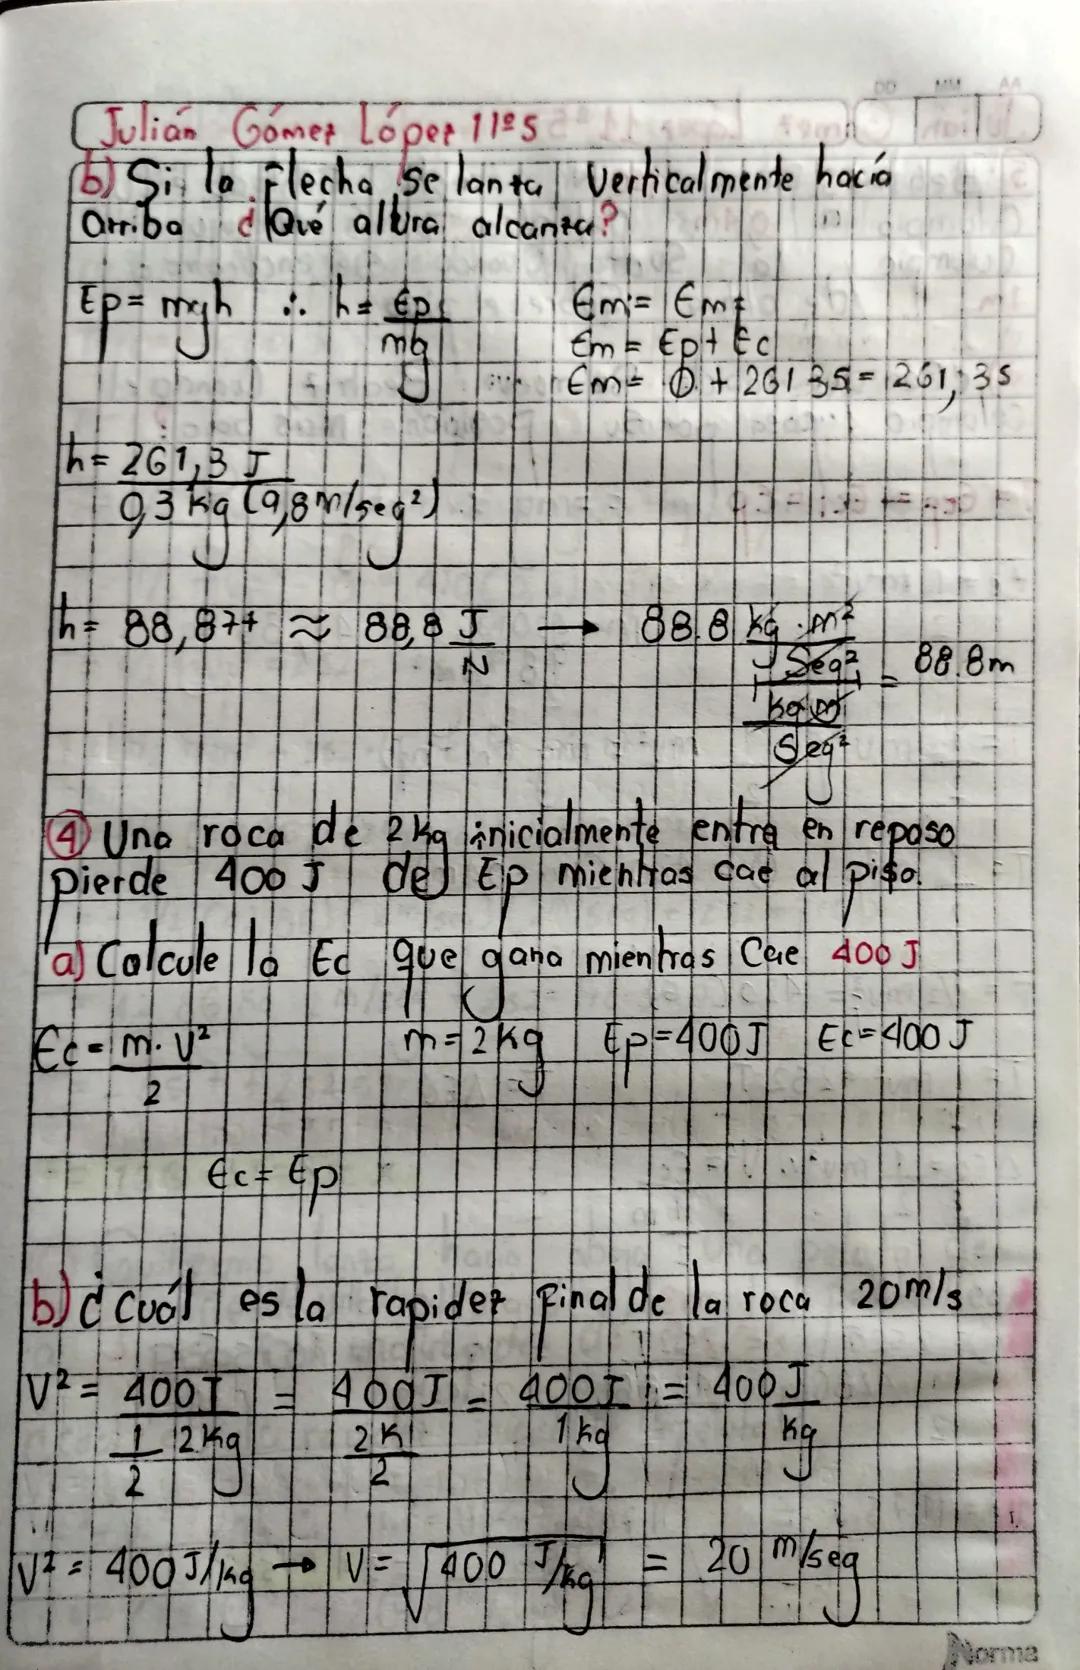 Julián Gómez López 11º5
b) Si la flecha se lanza verticalmente hacía
arriba ¿Qué altura alcanza?
Ep = mgh ∴ h = Ep/mg
Emi = Emf
Em = Ep + Ec
Em = 0 + 261,35 = 261,35
h = 261,3 J / 0,3 kg (9,8 m/seg²)
h = 88,87 ≈ 88,8 J/N → 88.8 kg·m²/seg² / kg·m/seg² = 88.8m
④ Una roca de 2 kg inicialmente entra en reposo
pierde 400 J de Ep mientras cae al piso.
a) Calcule la Ec que gana mientras Cae 400 J
Ec = m·v²/2 m = 2 kg Ep = 400 J Ec = 400 J
Ec = Ep
b) ¿Cuál es la rapidez final de la roca 20 m/s
V² = 400J / 1/2 2kg = 400J / 2K/2 = 400J / 1kg = 400 J/kg
V² = 400 J/kg → V = √400 J/kg = 20 m/seg
Norma